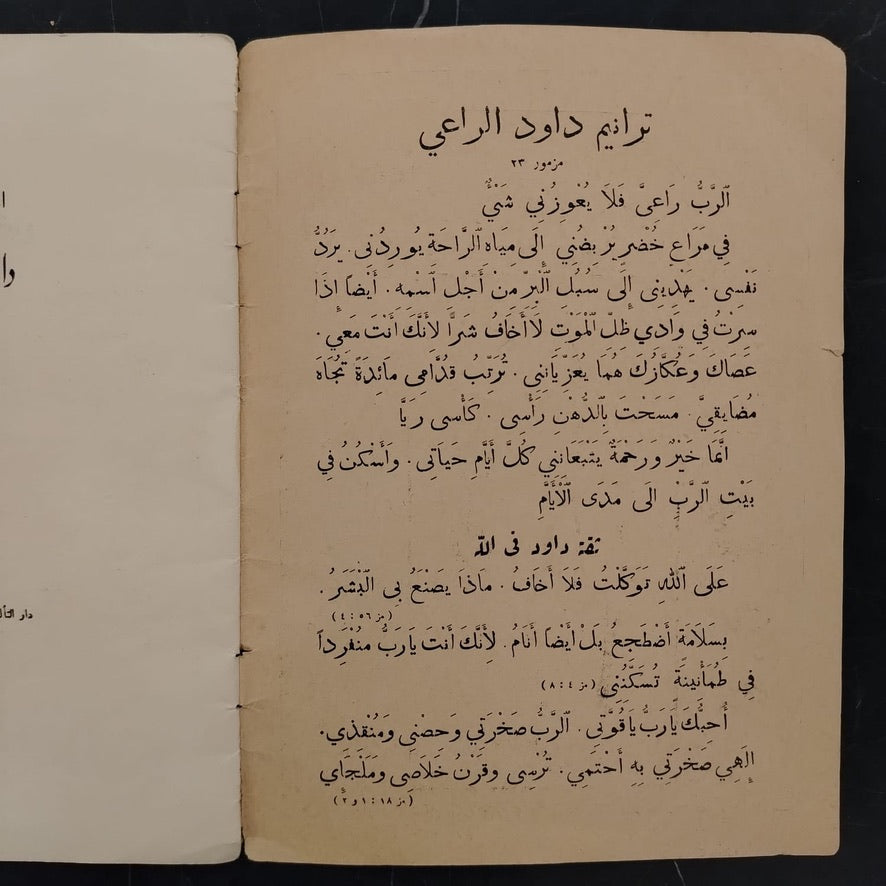 ترانيم داود الراعي
مزمور ٢٣
اَلرَّبُّ رَاعِىَّ فَلَا يُعْوِزُنِي شَىْءٌ
فِي مَرَاعٍ خُضْرٍ يُرْبِضُنِي إِلَى مِيَاهِ ٱلرَّاحَةِ يُورِدُنِى. يَرُدُّ
نَفْسِى. يَهْدِينِى إِلَى سُبُلِ ٱلْبِرِّ مِنْ أَجْلِ ٱسْمِهِ. أَيْضاً إِذَا
سِرْتُ فِي وَادِي ظِلِّ ٱلْمَوْتِ لَا أَخَافُ شَرًّا لِأَنَّكَ أَنْتَ مَعِي.
عَصَاكَ وَعُكَّازُكَ هُمَا يُعَزِّيَانِنِى. تُرَتِّبُ قُدَّامِى مَائِدَةً تُجَاهَ
مُضَايِقِيَّ. مَسَحْتَ بِٱلدُّهْنِ رَأْسِى. كَأْسِى رَيَّا
إِنَّمَا خَيْرٌ وَرَحْمَةٌ يَتْبَعَانِنِي كُلَّ أَيَّامِ حَيَاتِى. وَأَسْكُنُ فِي
بَيْتِ ٱلرَّبِّ إِلَى مَدَى ٱلْأَيَّامِ
ثقة داود فى الله
عَلَى ٱللهِ تَوَكَّلْتُ فَلَا أَخَافُ. مَاذَا يَصْنَعُ بِى ٱلْبَشَرُ.
(مز ٥٦ : ٤)
بِسَلَامَةٍ أَضْطَجِعُ بَلْ أَيْضاً أَنَامُ. لِأَنَّكَ أَنْتَ يَارَبُّ مُنْفَرِداً
فِي طُمَأْنِينَةٍ تُسَكِّنُنِى (مز ٤ : ٨)
أُحِبُّكَ يَارَبُّ يَاقُوَّتِى. ٱلرَّبُّ صَخْرَتِي وَحِصْنِى وَمُنْقِذِي.
إِلَهِي صَخْرَتِي بِهِ أَحْتَمِي. تُرْسِى وَقَرْنُ خَلَاصِى وَمَلْجَاي
(مز ١٨ : ١ و ٢)
دا